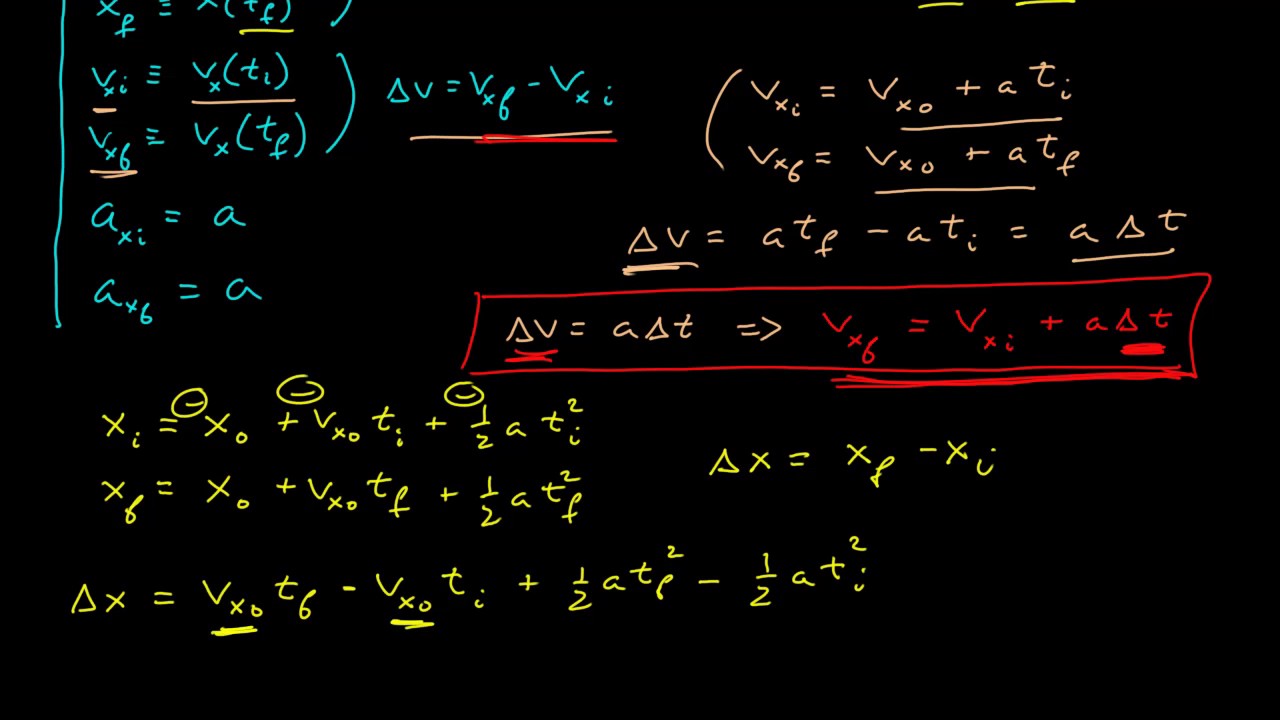 x_f ≡ x(t_f)
v_xi ≡ v_x(t_i)
v_xf ≡ v_x(t_f)
Δv = v_xf - v_xi
a_xi = a
a_xf = a
v_xi = v_x0 + a t_i
v_xf = v_x0 + a t_f
Δv = a t_f - a t_i = a Δt
Δv = a Δt => v_xf = v_xi + a Δt
x_i = x_0 + v_x0 t_i + 1/2 a t_i^2
x_f = x_0 + v_x0 t_f + 1/2 a t_f^2
Δx = x_f - x_i
Δx = v_x0 t_f - v_x0 t_i + 1/2 a t_f^2 - 1/2 a t_i^2